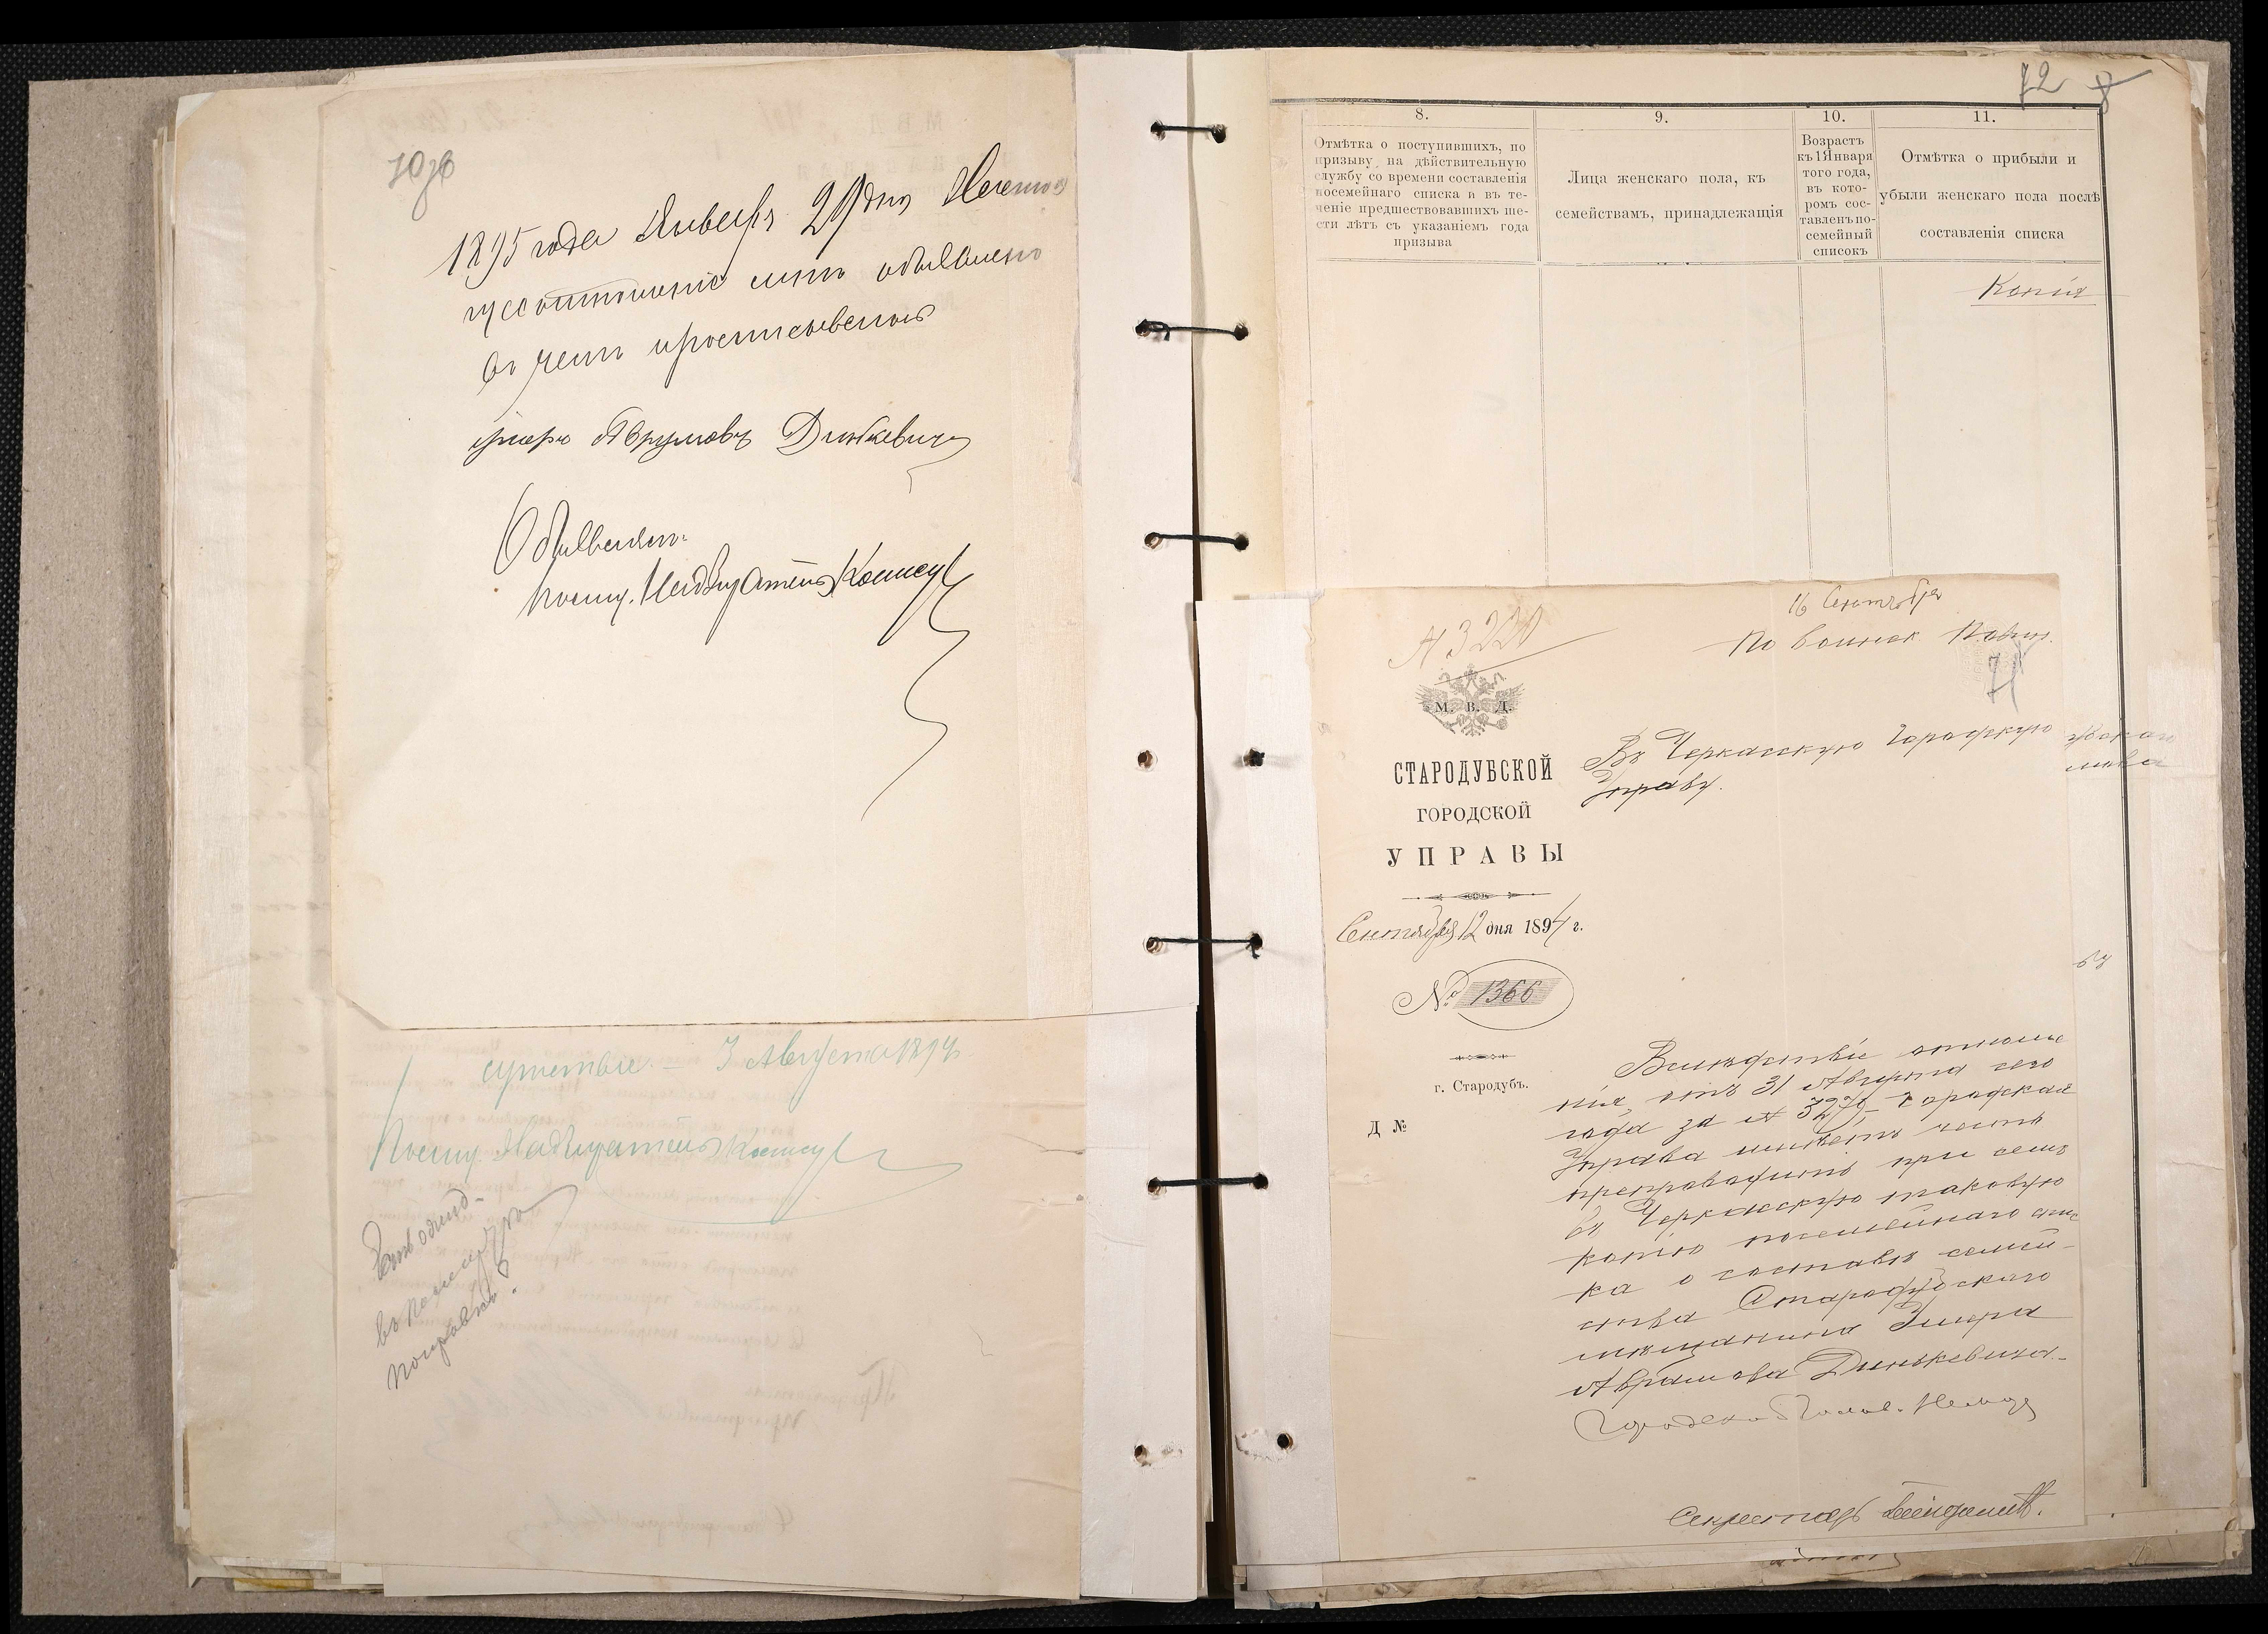 70об
1895 года Января 29 дня Настоя
щее отношение мне объявлено
въ чемъ и росписываюсь
Эмеръ Аврумовъ Динкевичъ
Объявлялъ
Полиц. Надзиратель
сутствіе. — 3 Августа 1894
Полиц. Надзиратель
72
8.
Отмѣтка о поступившихъ, по
призыву на дѣйствительную
службу со времени составленія
посемейнаго списка и въ те-
ченіе предшествовавшихъ ше-
сти лѣтъ съ указаніемъ года
призыва
9.
Лица женскаго пола, къ
семействамъ, принадлежащія
10.
Возрастъ
къ 1 Января
того года,
въ кото-
ромъ сос-
тавленъ по-
семейный
списокъ
11.
Отмѣтка о прибыли и
убыли женскаго пола послѣ
составленія списка
Копія
16 Сентября
По воинск. повин.
71
М. В. Д.
СТАРОДУБСКОЙ
ГОРОДСКОЙ
УПРАВЫ
Сентября 12 дня 1894 г.
№ 1366
г. Стародубъ.
Д №
Въ Черкасскую Городскую
Управу.
Вслѣдствіе отноше
нія, отъ 31 Августа сего
года за № 3270 Городская
Управа имѣетъ честь
препроводить при семъ
въ Черкасскую таковую
копію посемейнаго спис
ка о составѣ семей-
ства Стародубскаго
мѣщанина Эмера
Абрамова Динкевича.
Городской Голова
Секретарь